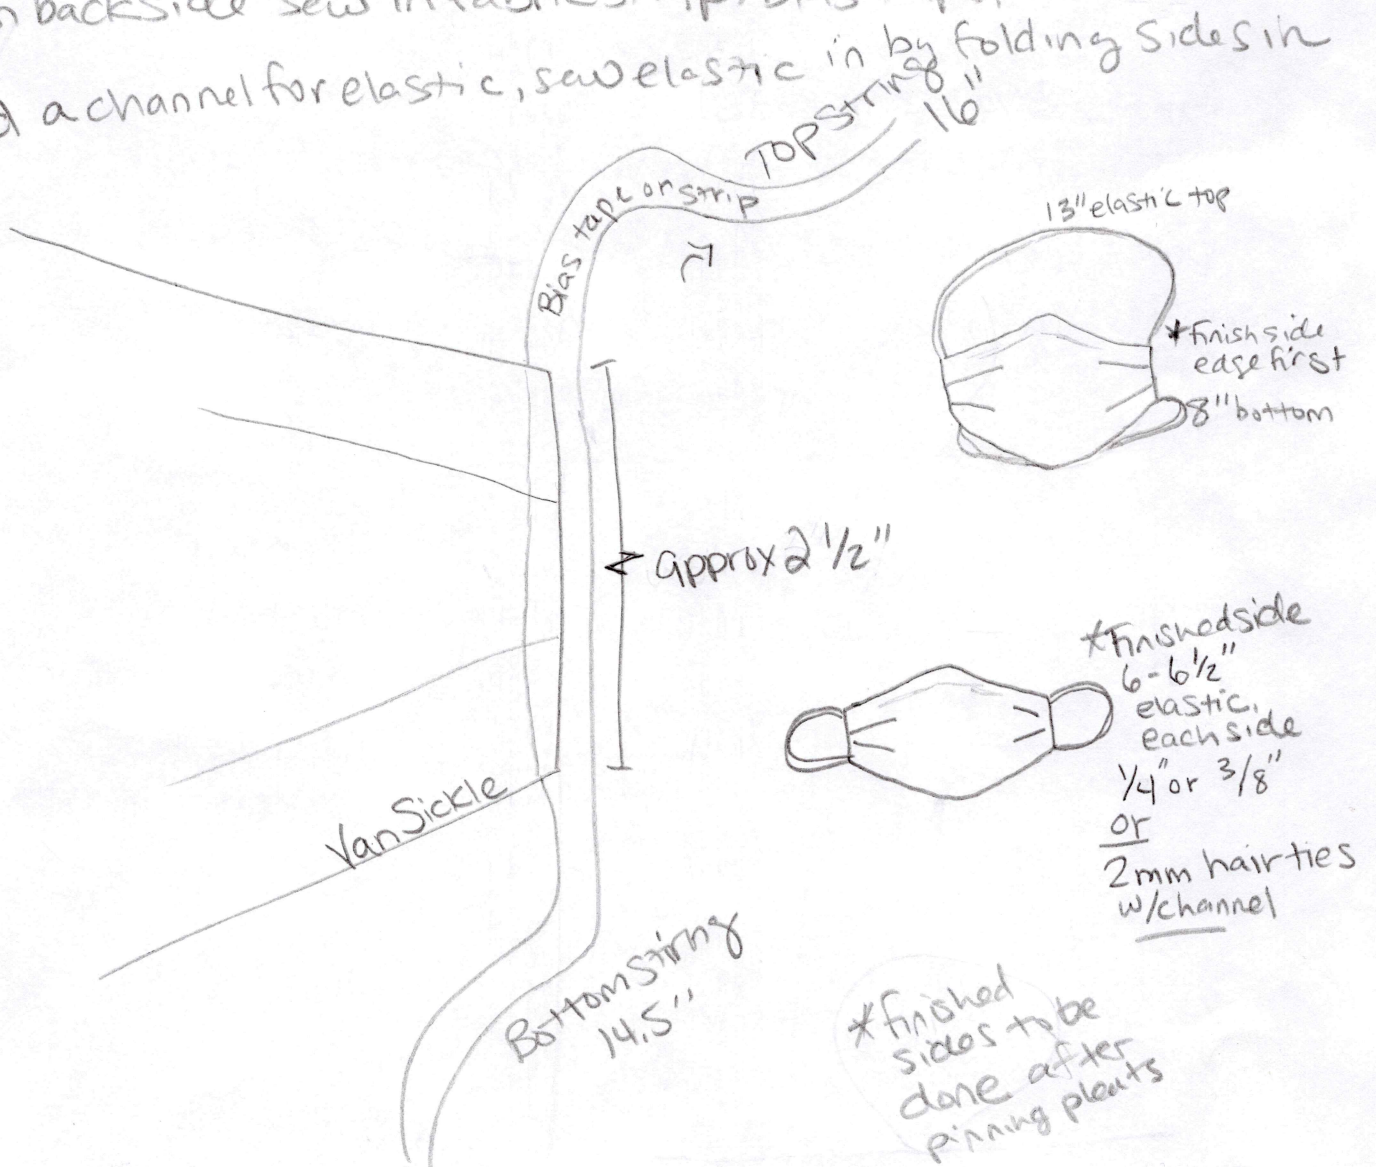 backside sew in
a channel for elastic, sew elastic in by folding sides in
Top String
16"
Bias tape or strip
13" elastic top
*finish side
edge first
8" bottom
approx 2 1/2"
*Finished side
6-6 1/2"
elastic,
each side
1/4" or 3/8"
or
2mm hair ties
w/channel
VanSickle
Bottom Stirng
14.5"
*finished
sides to be
done after
pinning pleats